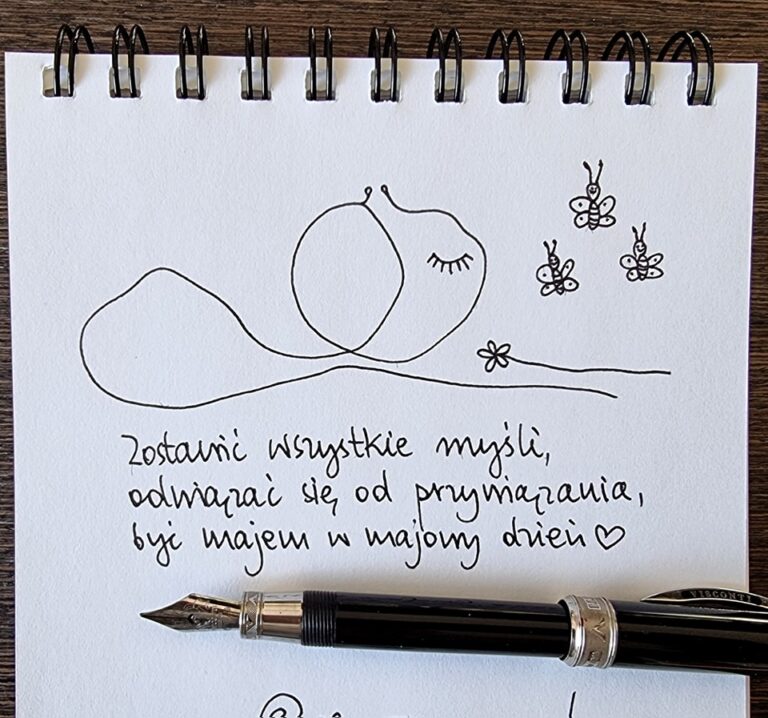 Zostawić wszystkie myśli,
odwiązać się od przywiązania,
być majem w majowy dzień ♡
VISCONTI